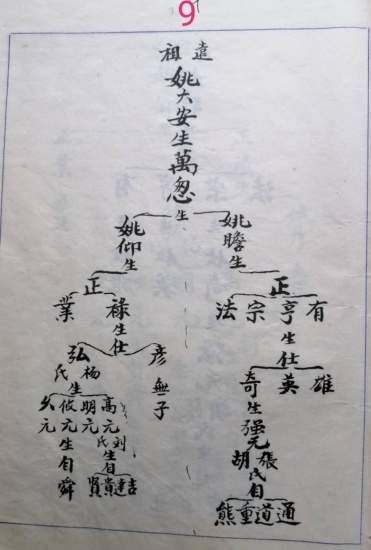 9
遠祖
姚大安生萬忽
生
姚瞻生
姚仰生
正
有亨宗法
生仕
雄英奇
生强元
張胡氏自
通道重熊
正
禄業
生仕
彦弘
無子
楊氏
生
高明攸久
元元元元
劉氏生自
吉達貴賢
生自舜